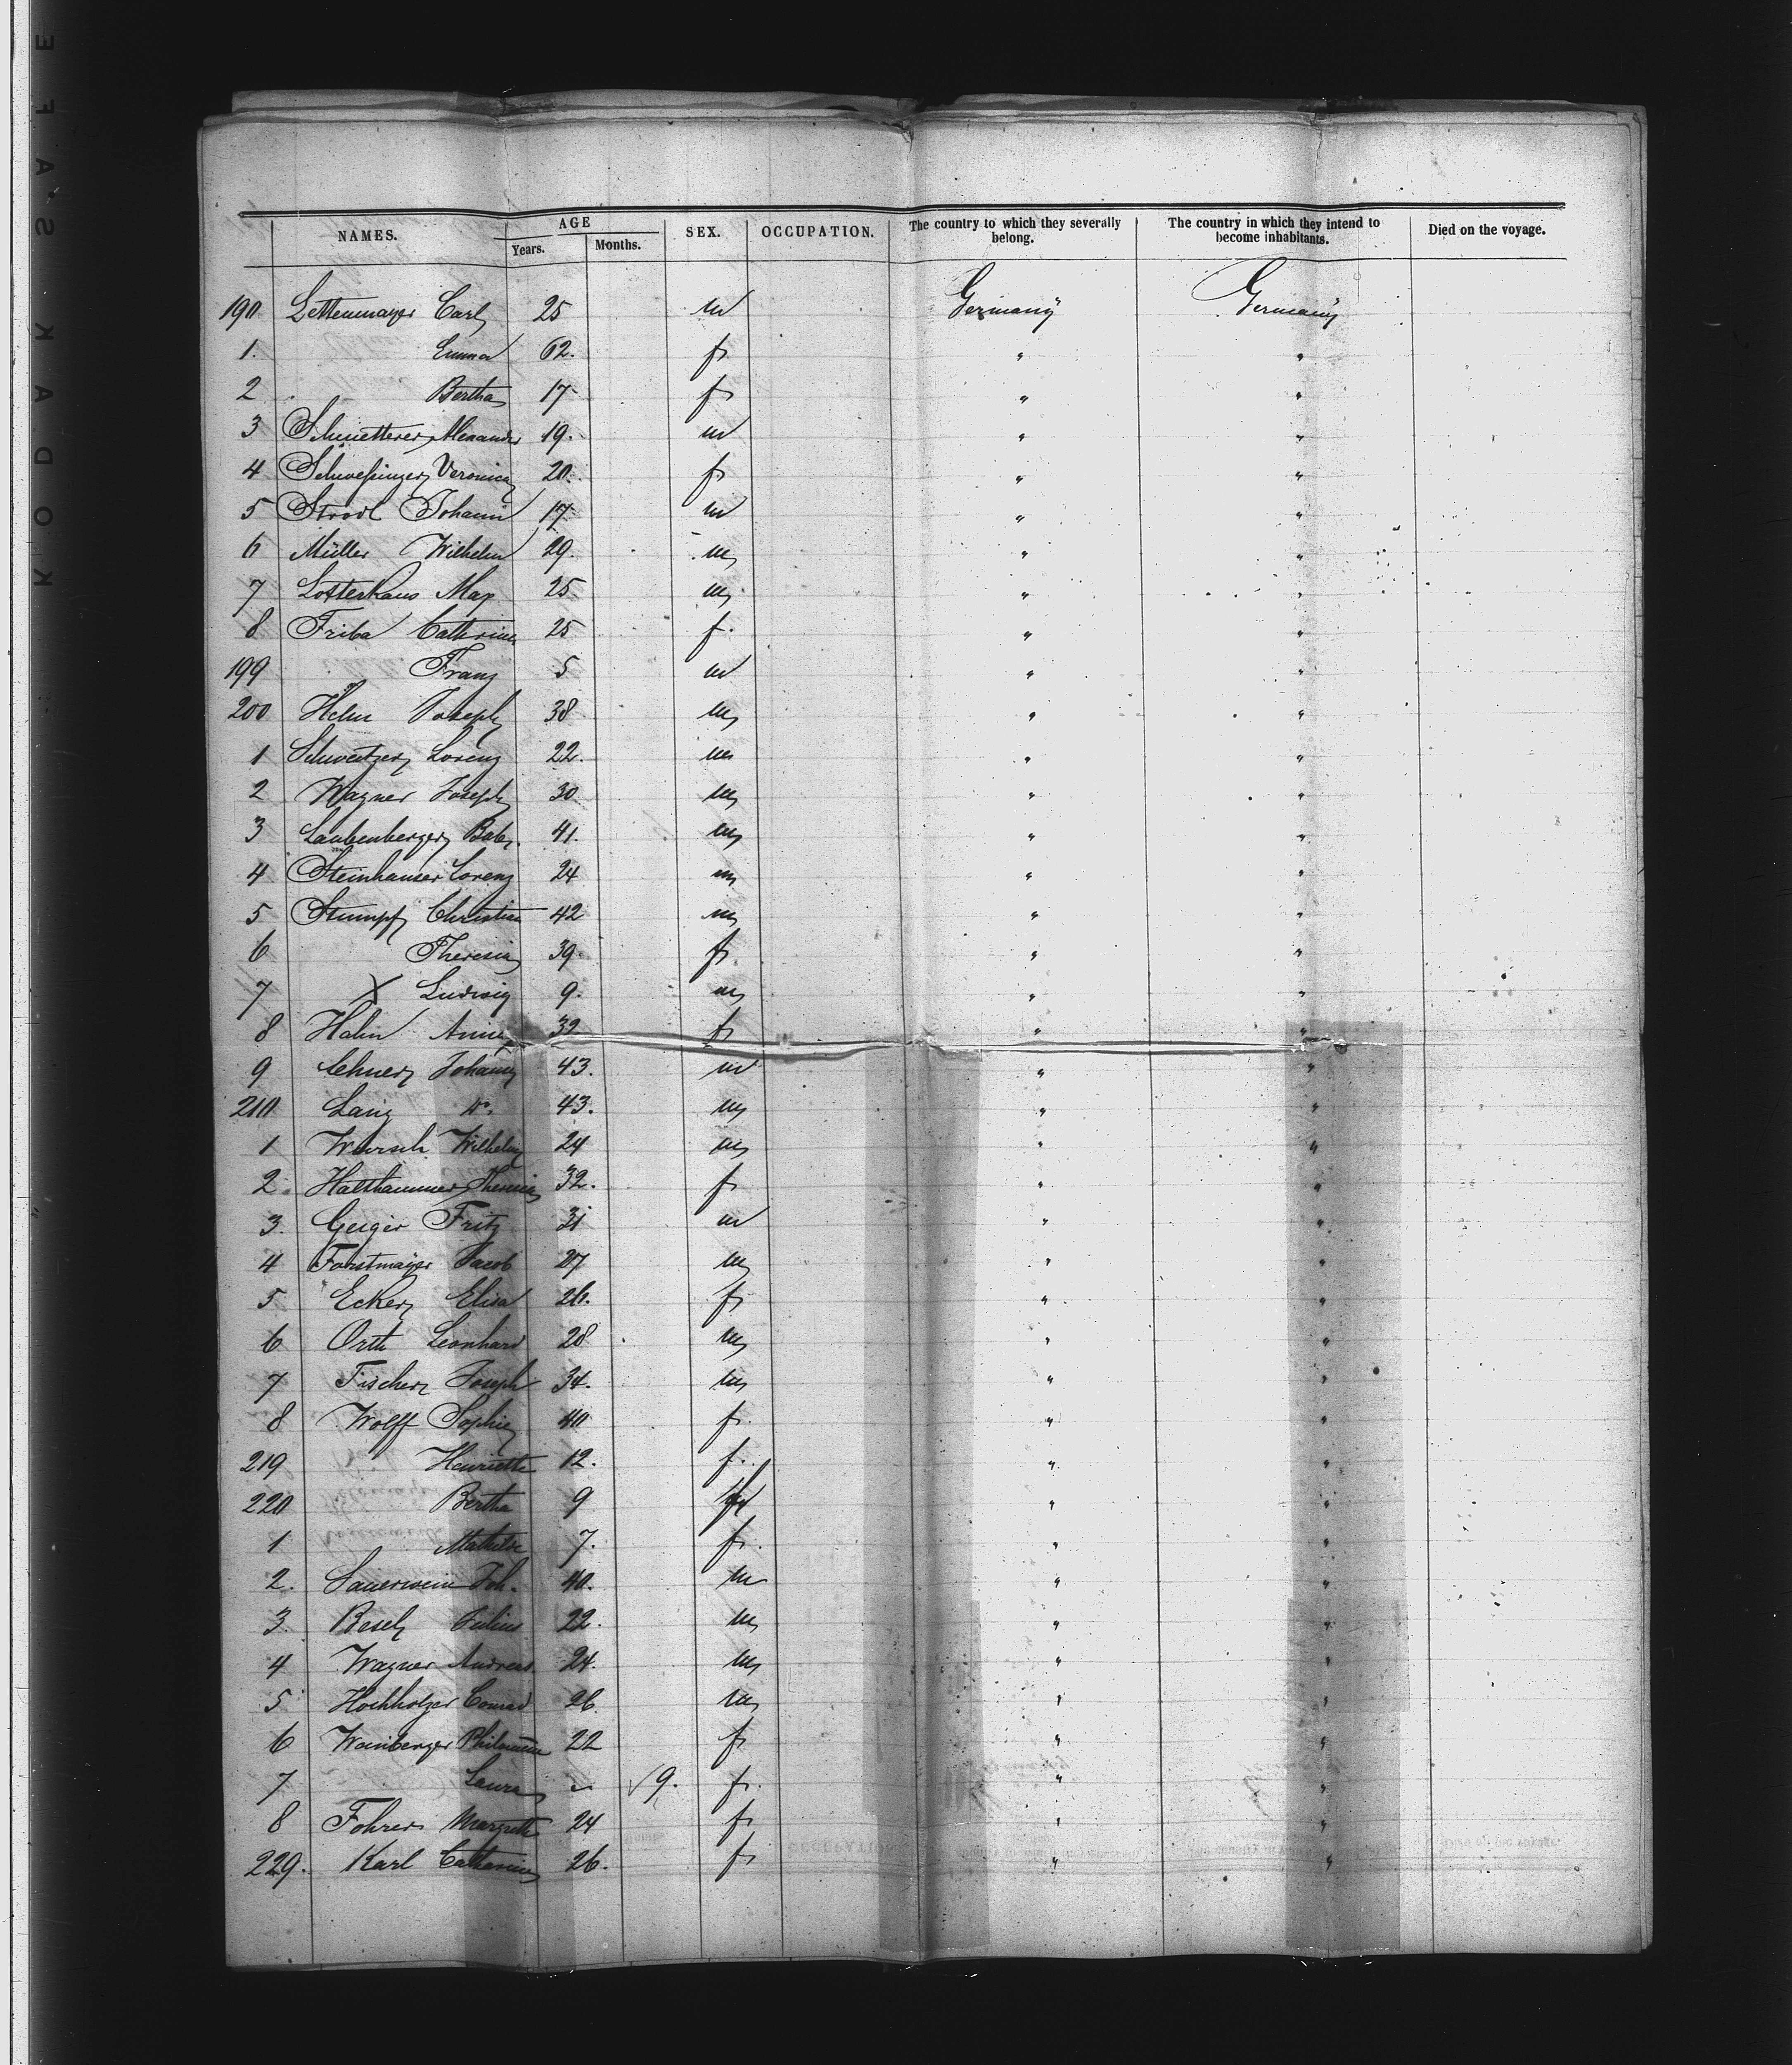 NAMES. AGE Years. Months. SEX. OCCUPATION. The country to which they severally belong. The country in which they intend to become inhabitants. Died on the voyage.
190 Lettenmayer Carl 25 m Germany Germany
1. Emma 62. f " "
2 Bertha 17 f " "
3 Schmetterer Alexander 19. m " "
4 Schweßinger Veronica 20. f " "
5 Strodl Johann 17 m " "
6 Müller Wilhelm 29. m " "
7 Lotterhaus Max 25 m " "
8 Friba Cathrine 25 f. " "
199 Franz 5 m " "
200 Helm Joseph 38 m " "
1 Schweitzer Lorenz 22. m " "
2 Wagner Joseph 30 m " "
3 Laubenberger Balt. 41. m " "
4 Steinhauser Lorenz 24 m " "
5 Stumpf Christian 42 m " "
6 Theresia 39. f. " "
7 X Ludwig 9. m " "
8 Hahn Anna 32 f " "
9 Lehner Johann 43. m " "
210 Lang do. 43. m " "
1 Wursch Wilhelm 24 m " "
2. Halshammer Theresia 32. f " "
3. Geiger Fritz 31 m " "
4 Forstmaÿer Jacob 27 m " "
5 Ecker Elisa 26. f " "
6 Orth Leonhard 28 m " "
7 Fischer Joseph 34. m " "
8 Wolff Sophie 40 f. " "
219 Henriette 12. f. " "
220 Bertha 9 f " "
1 Mathilde 7. f. " "
2. Sauerwein Joh. 40. m " "
3. Besch Julius 22. m " "
4 Wagner Andreas 24. m " "
5 Hochholzer Conrad 26. m " "
6 Weinberger Philomena 22 f " "
7 Laura 9. f. " "
8 Fohrer Margreth 24 f " "
229. Karl Catharina 26. f " "
KODAK S'AFE